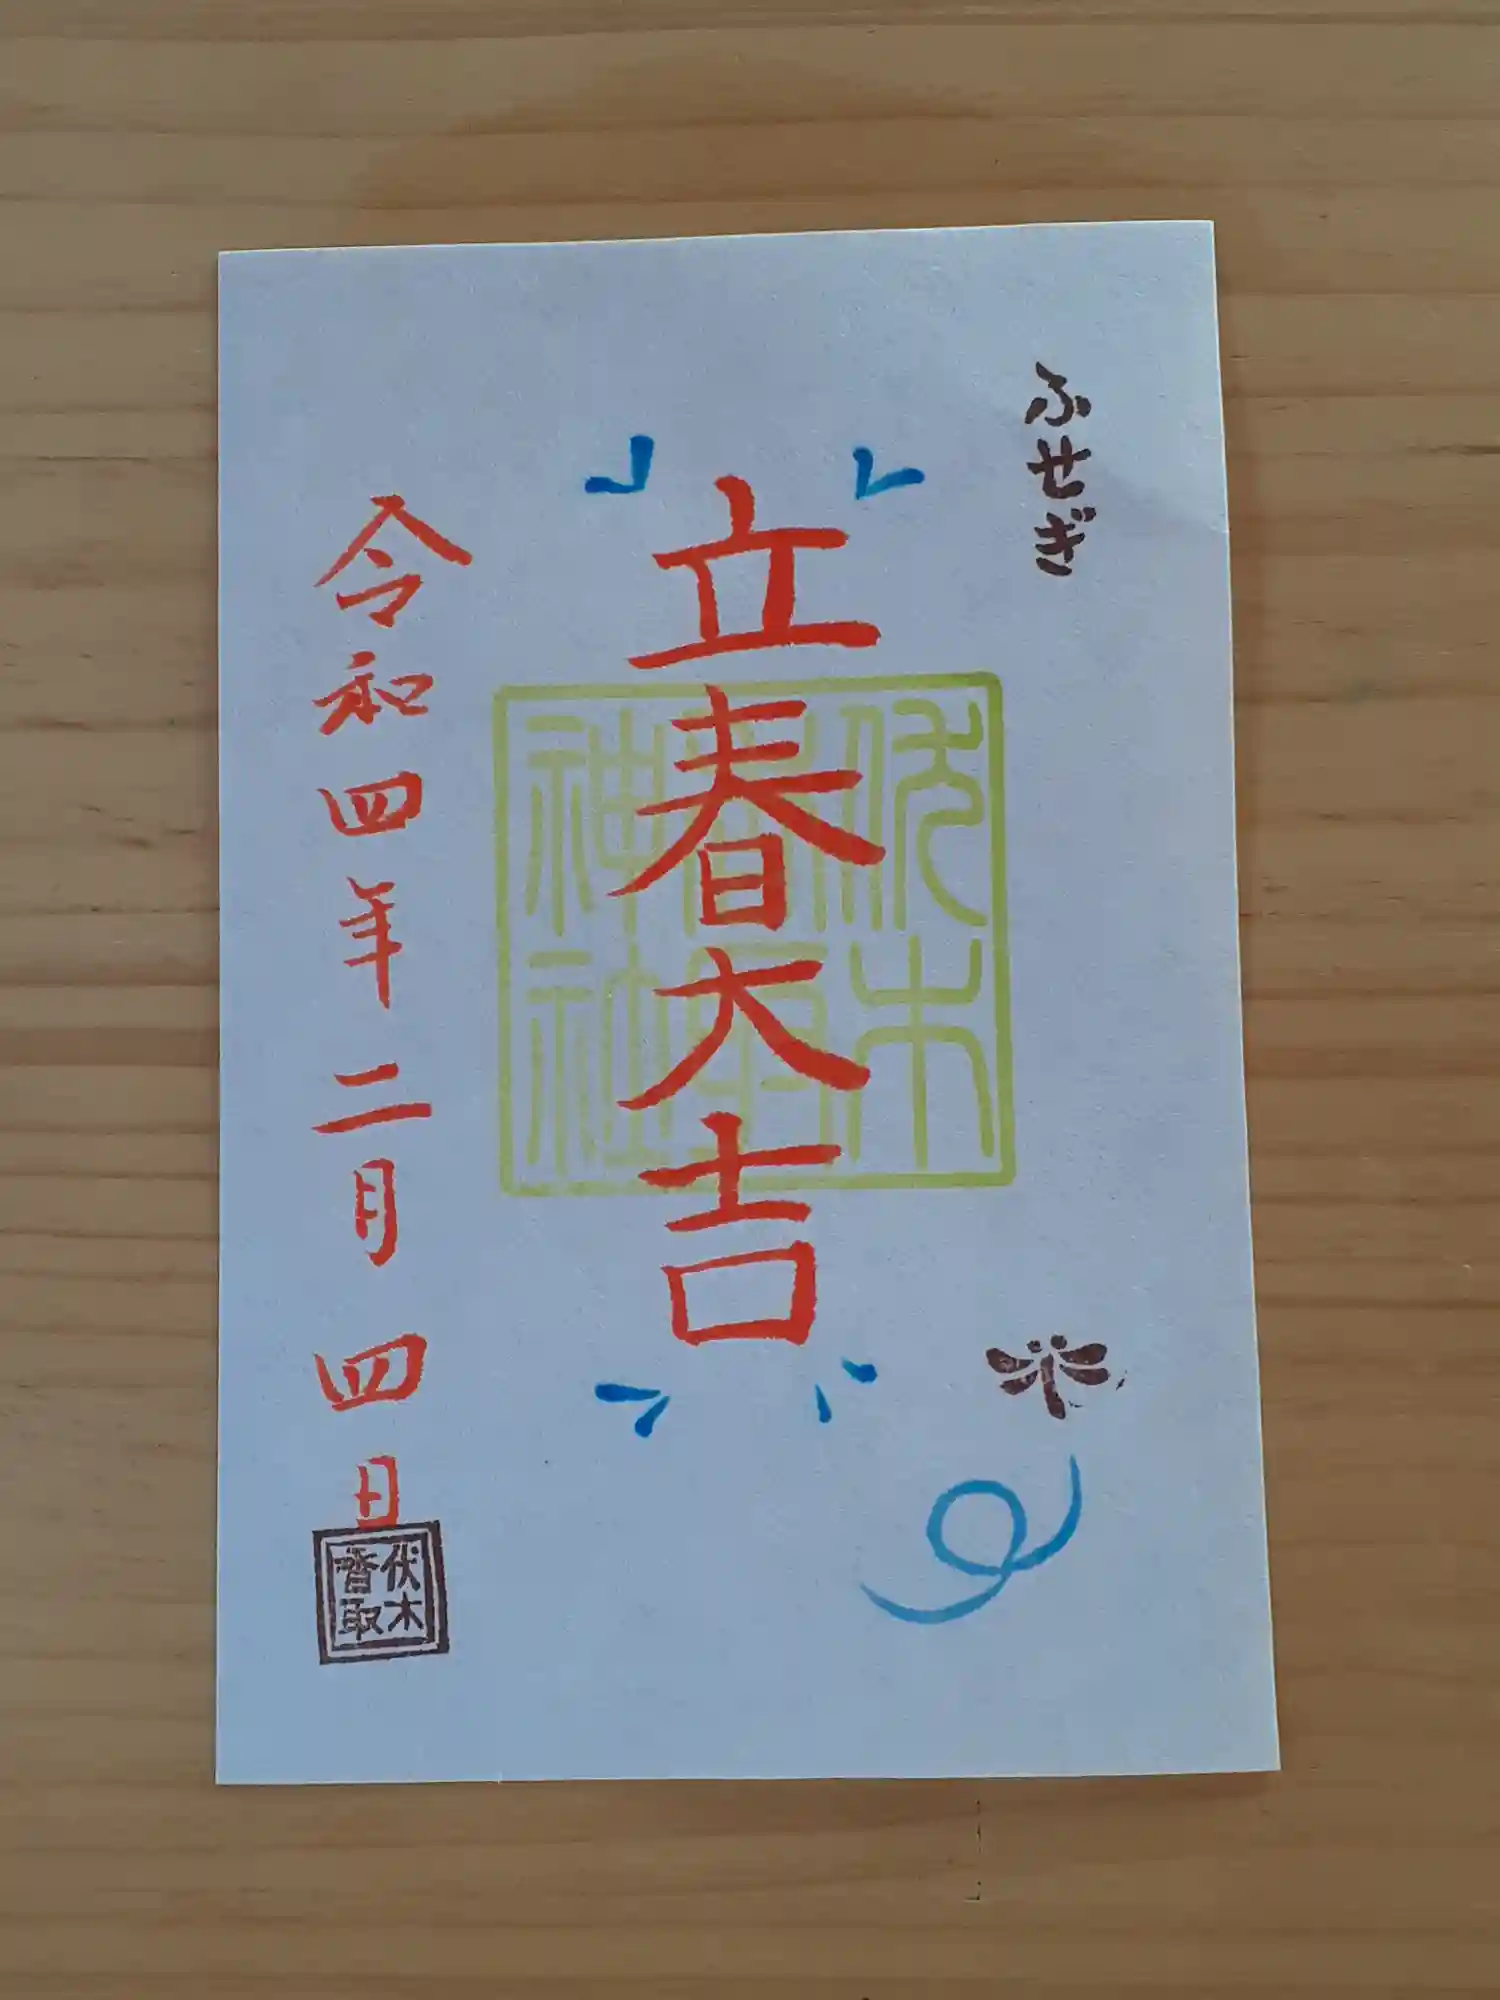 ふせぎ
立春大吉
伏木
香取
神社
令和四年二月四日
伏木
香取